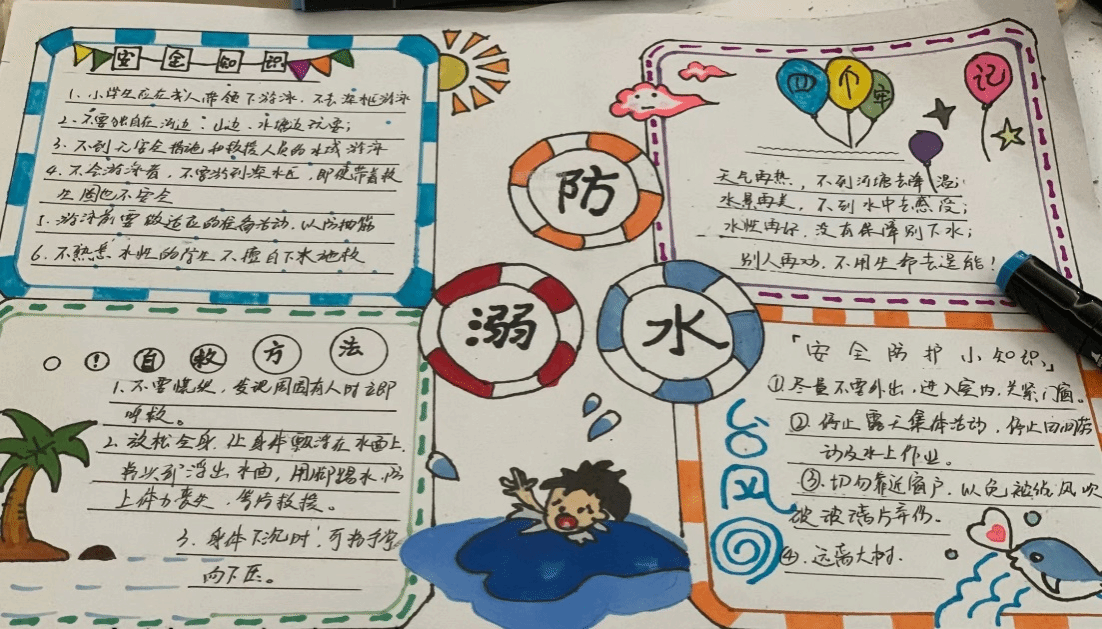 安全知识
1、小学生应在成人带领下游泳，不去深水区游泳
2、不要独自在河边、山边、水塘边玩耍；
3、不到无安全措施和救援人员的水域游泳
4、不会游泳者，不要游到深水区，即使带着救
生圈也不安全
5、游泳前要做适应的准备活动，以防抽筋
6、不熟悉水性的学生不擅自下水施救
防
溺
水
四个牢记
天气再热，不到河塘去降温；
水景再美，不到水中去感受；
水性再好，没有保障别下水；
别人再劝，不用生命去逞能！
！自救方法
1、不要慌张，发现周围有人时立即
呼救。
2、放松全身，让身体飘浮在水面上，
将头部浮出水面，用脚踢水，防
止体力丧失，等待救援。
3、身体下沉时，可将手掌
向下压。
「安全防护小知识」
①尽量不要外出，进入室内，关紧门窗。
②停止露天集体活动，停止田间劳
动及水上作业。
③切勿靠近窗户，以免被强风吹
破玻璃片弄伤。
④、远离大树．
台风